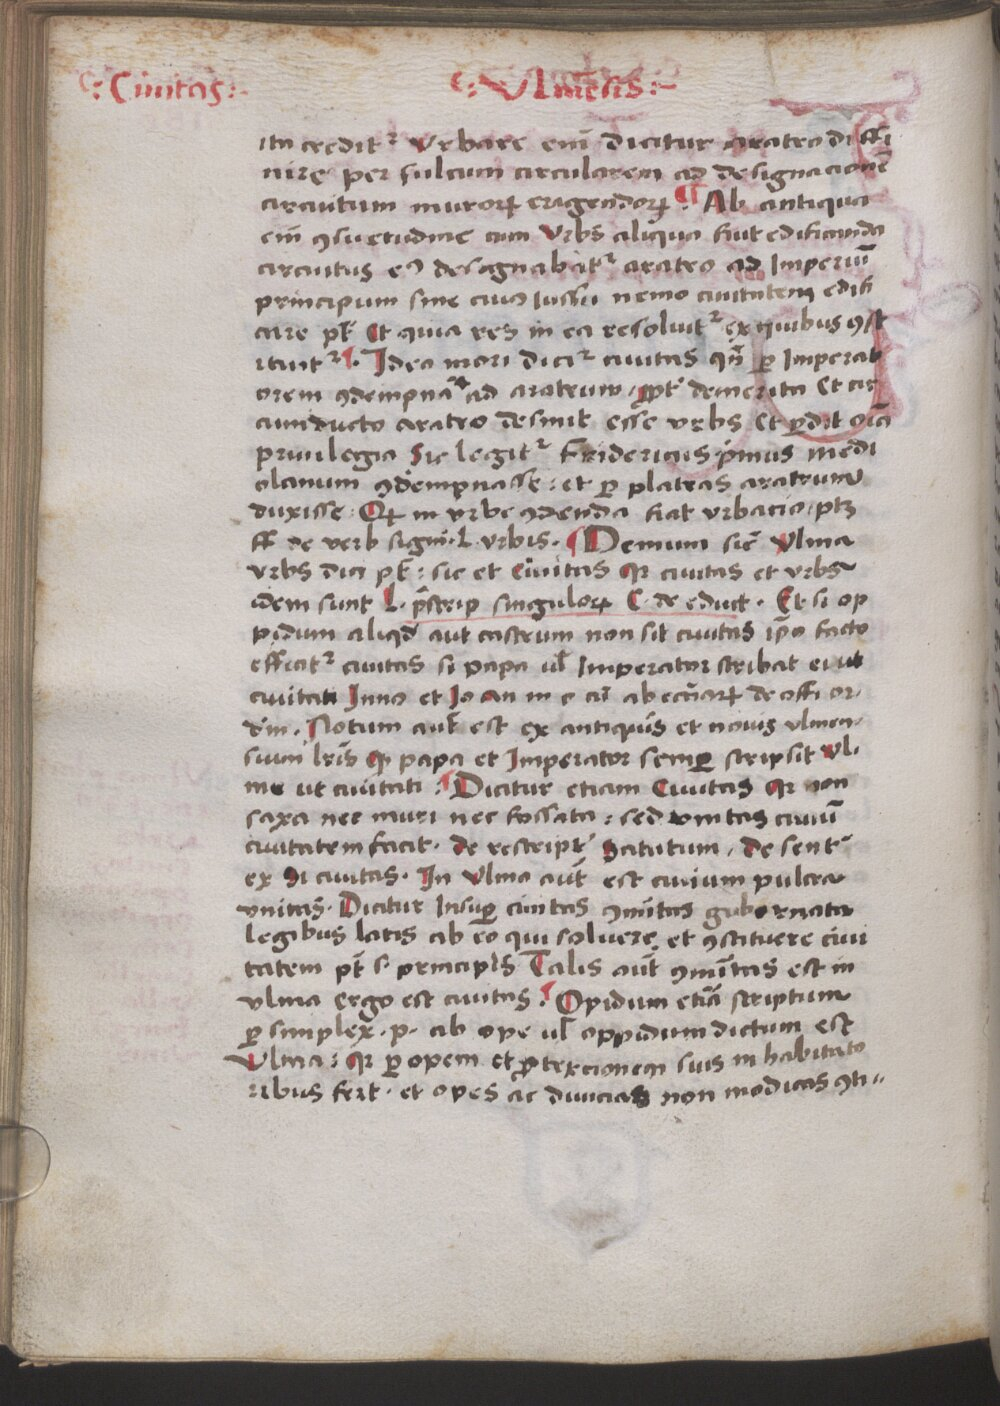 Ciuitas
Vlmēsis
ita creditꝛ Vrbare eni̅ dicitur aratro diffi
nire per sulcum circularem ad designacione̅
circuitum muroꝝ erigendoꝝ ¶ Ab antiqua
em̅ ꝯsuetudine cum Vrbs aliqua fiut edificanda
circuitus eꝯ designabātꝛ aratro ad Imperiu̅
principum sine cuiꝯ iussu nemo ciuitatem edifi
care pt̅ Et quia res in ea resoluitꝛ ex quibus ꝯst
ituitꝛ Ideo mori diciꝛ ciuitas qn̅ ꝑ Imperat
orem ꝯdempnāt ad aratrum ꝓpt̕ demerita Et cir
cumducto aratro desinit esse vrbs Et ꝑdit oi̅a
priuilegia Sic legitꝛ Fridericus p̕mus medi
olanum ꝯdempnasse : et ꝑ plateas aratrum
duxisse : Qꝝ in vrbe ꝯdenda fiat vrbacio ptꝫ
ff de verb signi̅. L vrbis. ¶ Demum sic̅ Vlma
vrbs dici pt̅ : sic et ciuitas qꝛ ciuitas et vrbs
idem sunt L. p̅scrip singuloꝝ C. de edict. Et si op
pidum aliqd̕ aut castrum non sit ciuitas ip̅o facto
efficitꝛ ciuitas si papa ul̅ Imperator scribat ei ut
ciuitati Inno et Io an in c cu̅ ab eccl̅iaꝝ de offi or.
din̅. Notum aut̅ est ex antiquis et nouis vlmen.
sium lr̅is ꝙ papa et Imperator semꝑ scripsit Vl.
me ut ciuitati ¶ Dicitur etiam Ciuitas qꝛ non
saxa nec muri nec fossata : sed vnitas ciuiu̅
ciuitatem facit. de rescript̕ statutum, de sent̅
ex si ciuitas. In Vlma aut̅ est ciuium pulcra
vnitas. Dicitur Insuꝑ ciuitas ꝯmu̅itas gubernata
legibus latis ab eo qui soluere et ꝯstituere ciui
tatem pt̅ s. principis Talis aut̅ ꝯmu̅itas est in
vlma ergo est ciuitas. ¶ Opidum etia̅ scriptum
ꝑ simplex .p. ab ope ul̅ oppidum dictum est
Vlma : qꝛ ꝑ opem et ꝓtexcionem suis inhabitato
ribus fert. et opes ac diuicias non modicas ꝯti〃